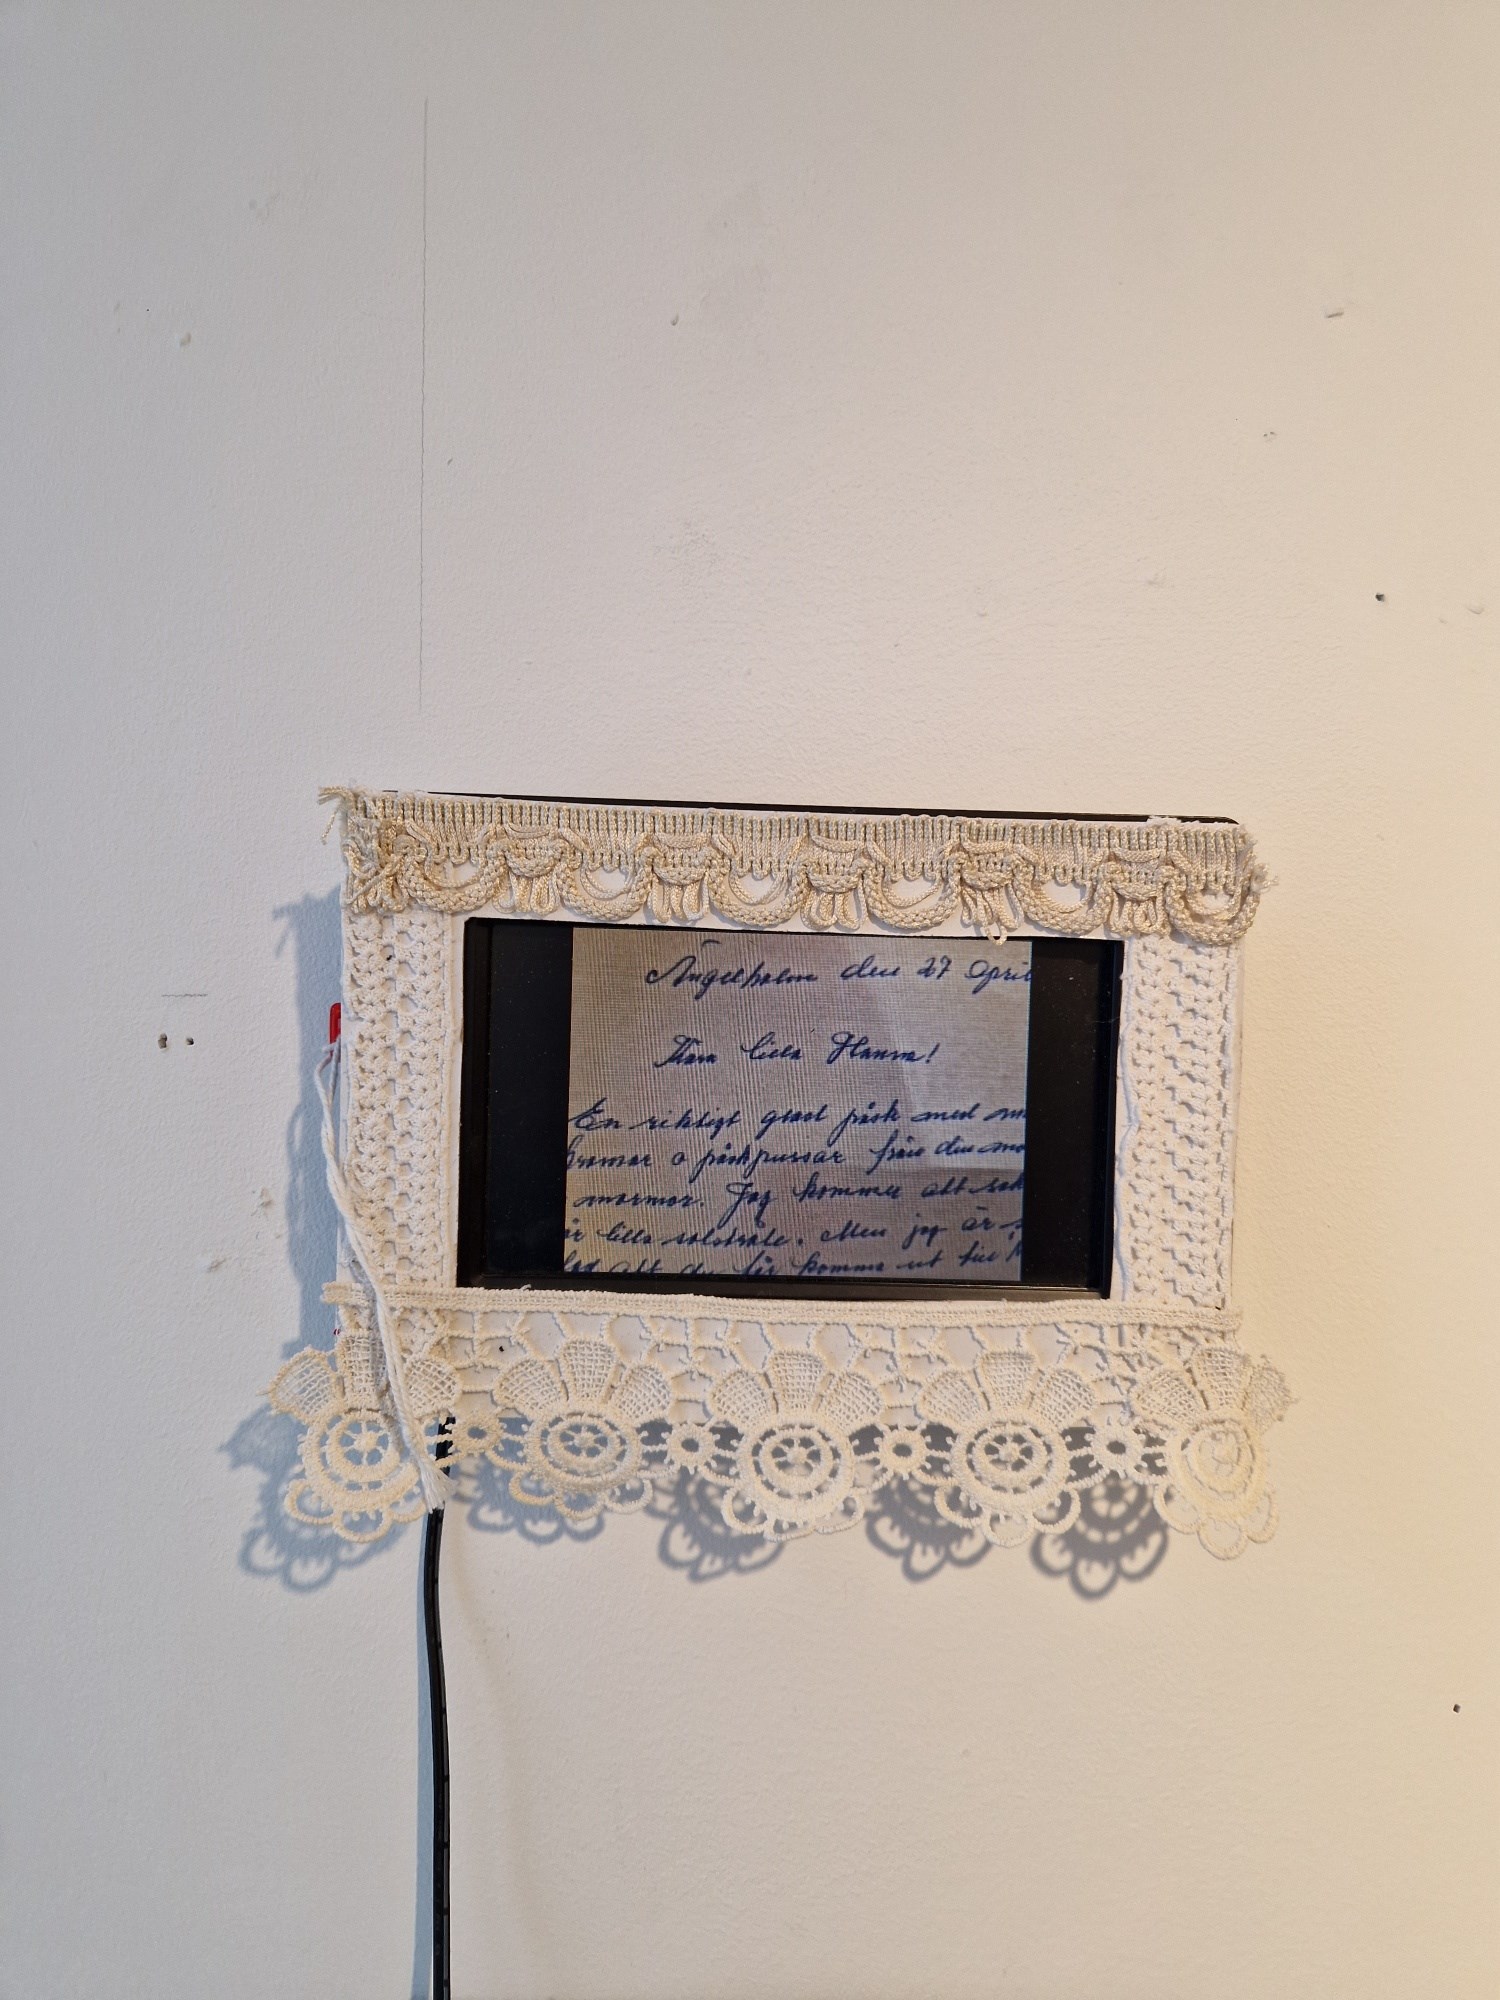 Ängelholm den 27 April
Kära lilla Hanna!
En riktigt glad påsk med
kramar o påskpussar från din
mormor. Jag kommer att sak
år lilla solstråle. Men jag är
att du får komma ut till